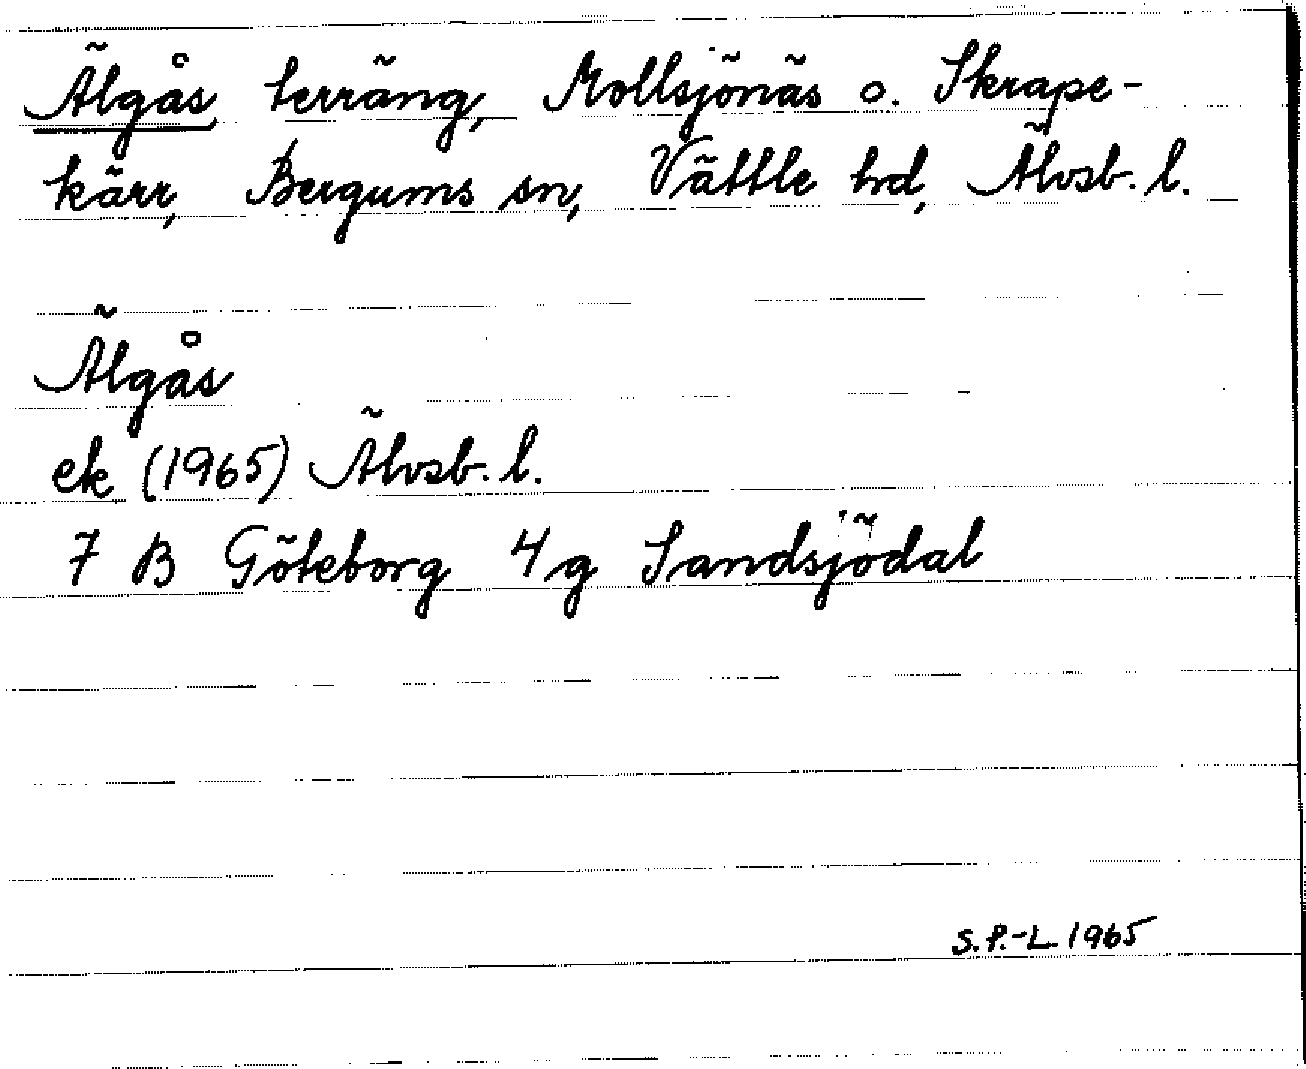 Älgås terräng, Mollsjönäs o. Skrape-
kärr, Bergums sn, Vättle hd, Älvsb. l.
Älgås
ek (1965) Älvsb. l.
7 B Göteborg 4g Sandsjödal
S.P.-L. 1965